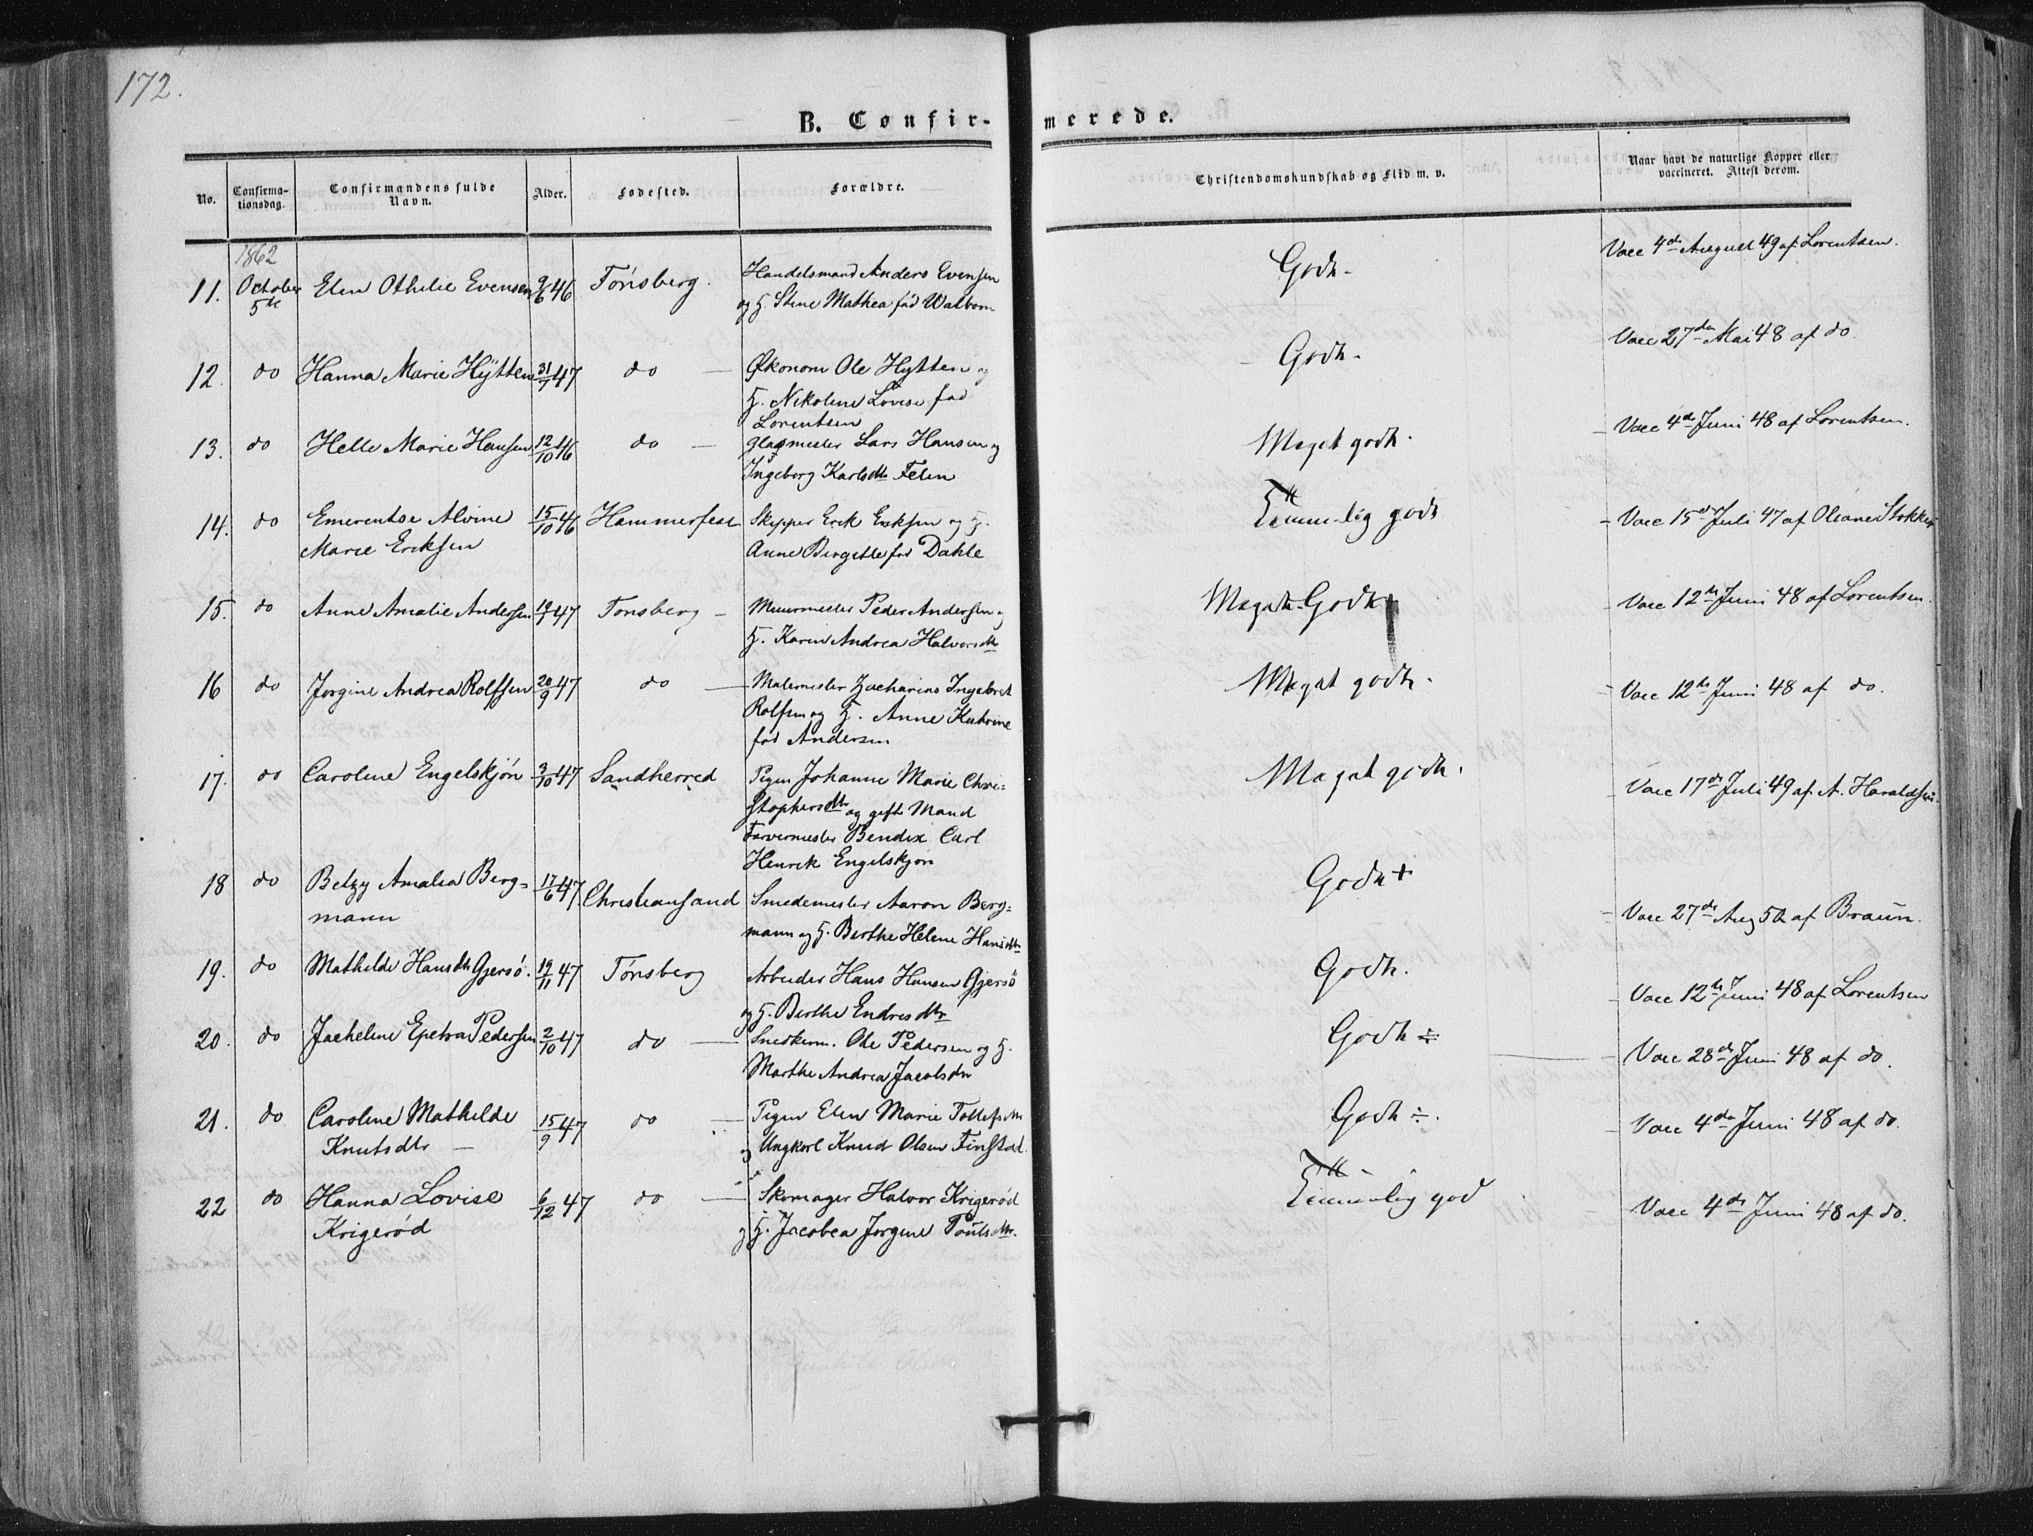 172.
B. Confir-
merede.
No.
Confirma-
tionsdag.
Confirmandens fulde
Navn.
Alder.
Fødested.
Forældre.
Christendomskundskab og Flid m. v.
Naar havt de naturlige Kopper eller
vaccineret. Attest derom.
1862
11. October 5te Elen Othilie Evensen 9/6 46 Tønsberg. Handelsmand Anders Evensen Godt. Vacc 4de August 49 af Lorentsen.
og H. Stine Mathea fød Walbom
12. do Hanna Marie Hÿtten 31/7 47 do — Økonom Ole Hÿtten og Godt. Vacc 27de Mai 48 af do.
H. Nikoline Lovise fød
Lorentsen
13. do Helle Marie Hansen 12/10 46 do — Glasmester Lars Hansen og Meget godt. Vacc 4de Juni 48 af Lorentsen.
Ingeborg Karlsdtr Felen
14. do Emerentse Alvine 15/10 46 Hammerfest Skipper Erik Eriksen og H. Temmelig godt Vacc 15de Juli 47 af Oleane Stokke
Marie Eriksen Anne Bergitte fød Dahle
15. do Anne Amalie Andersen 19/7 47 Tønsberg — Muurmester Peder Andersen og Meget Godt Vacc 12te Juni 48 af Lorentsen.
H. Karin Andrea Halvorsdtr
16 do Jorgine Andrea Rolfsen 20/9 47 do — Malermester Zacharias Ingebret Meget godt. Vacc 12te Juni 48 af do.
Rolfsen og H. Anne Katrine
fød Andersen
17. do Caroline Engelskjøn 3/10 47 Sandherred Pigen Johanne Marie Chri- Meget godt. Vacc 17de Juli 49 af A. Haraldsen.
stophersdtr og gift Mand
Farvermester Bendix Carl
Henrik Engelskjøn
18 do Betzy Amalia Berg= 17/6 47. Christiansand Smedemester Aaron Berg= Godt + Vacc 27de Aug 50 af Braun.
mann mann og H. Berthe Helene Hansdtr
19. do Mathilde Hansdtr Gjersø. 19/11 47 Tønsberg Arbeider Hans Hansen Gjersø Godt. Vacc 12te Juni 48 af Lorentsen
og H. Berthe Endresdtr
20. do Jacheline Epetra Pedersen 2/10 47 do — Snedkerm. Ole Pedersen og H. Godt ÷ Vacc 28de Juni 48 af do.
Marthe Andrea Jacobsdtr
21. do Caroline Mathilde 15/9 47 do — Pigen Elen Marie Tollefsdtr Godt ÷. Vacc 4de Juni 48 af do.
Knutsdtr — og Ungkarl Knud Olsen Finstad.
22 do Hanna Lovise 6/12 47 do — Skomager Halvor Krigerød Temmelig god Vacc 4de Juni 48 af do.
Krigerød og H. Jacobea Jorgine Poulsdtr.